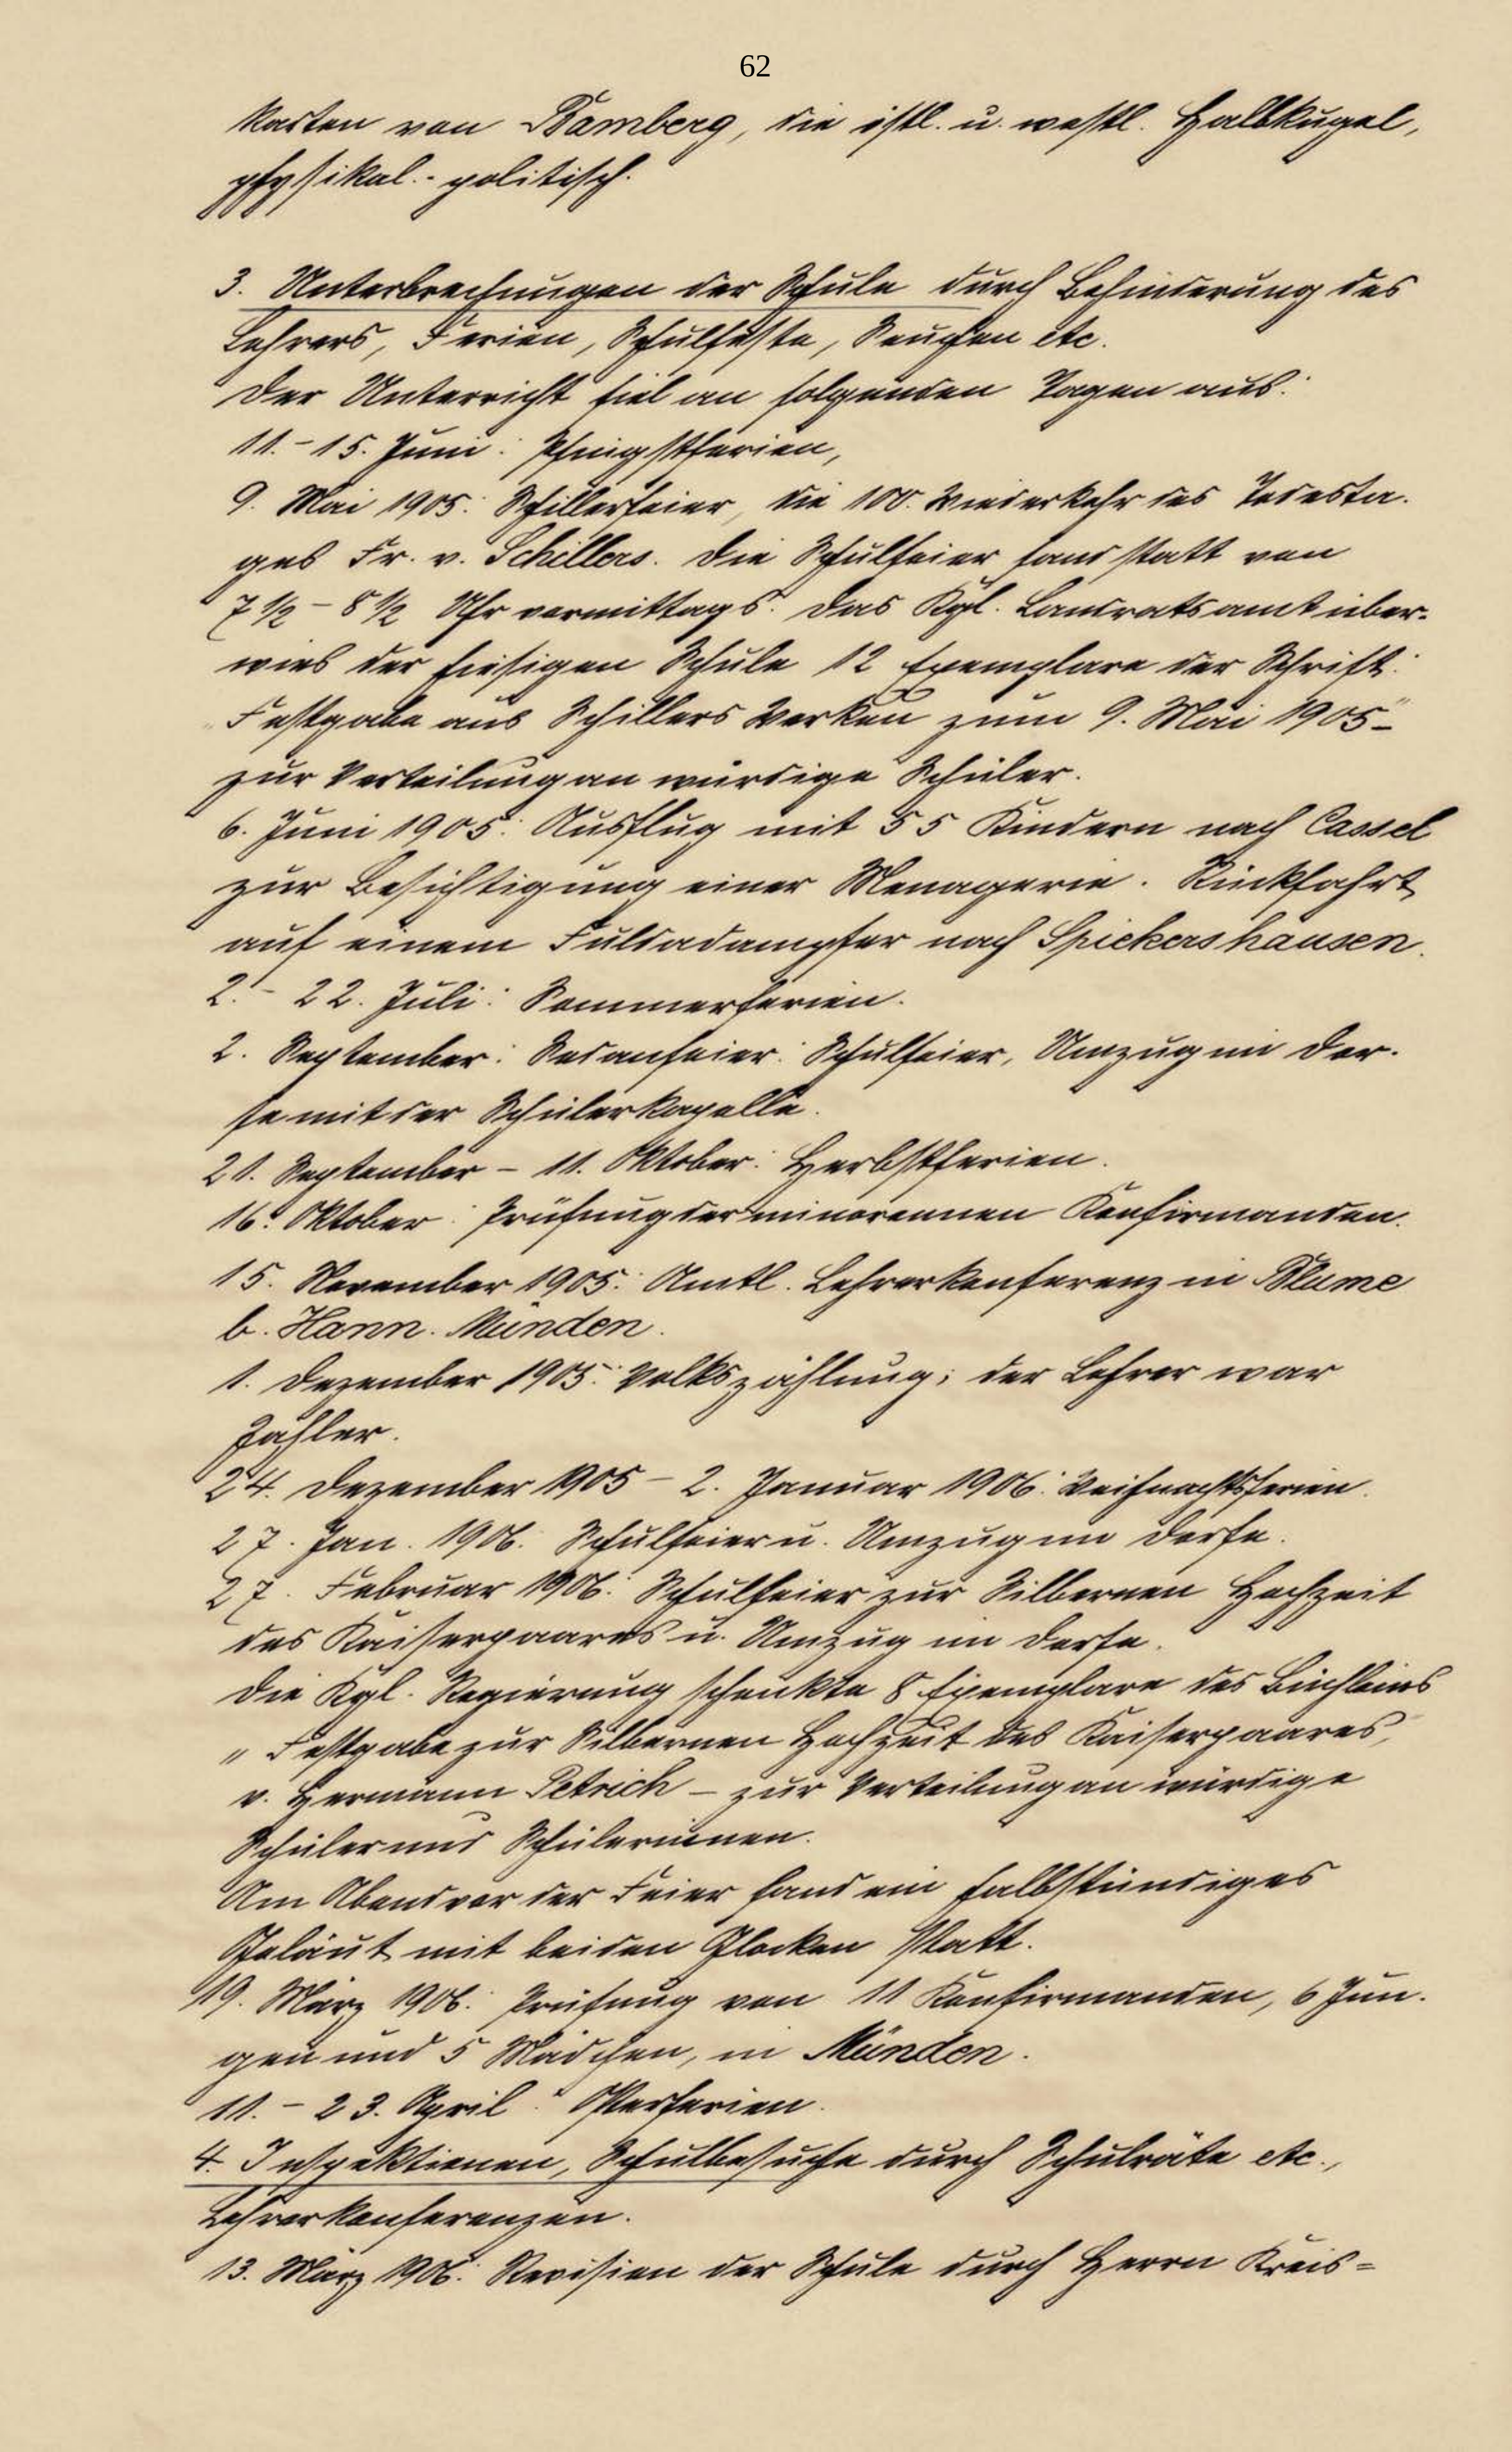 62
Karten von Bamberg, die östl. u. westl. Halbkugel,
physikal.-politisch.
3. Unterbrechungen der Schule durch Behinderung des
Lehrers, Ferien, Schulfeste, Seuchen etc.
Der Unterricht fiel an folgenden Tagen aus:
11.-15. Juni: Pfingstferien,
9. Mai 1905: Schillerfeier, die 100. Wiederkehr des Todesta-
ges Fr. v. Schillers. Die Schulfeier fand statt von
7 1/2 - 8 1/2 Uhr vormittags. Das Kgl. Landratsamt über-
wies der hiesigen Schule 12 Exemplare der Schrift:
"Festgabe aus Schillers Werken zum 9. Mai 1905"-
zur Verteilung an würdige Schüler.
6. Juni 1905: Ausflug mit 55 Kindern nach Cassel
zur Besichtigung einer Menagerie. Rückfahrt
auf einem Fuldadampfer nach Spiekershausen.
2.- 22. Juli: Sommerferien.
2. September: Sedanfeier: Schulfeier, Umzug im Dor-
fe mit der Schülerkapelle.
21. September - 11. Oktober: Herbstferien.
16. Oktober: Prüfung der minorennen Konfirmanden.
15. November 1905: Amtl. Lehrerkonferenz in Blume
b. Hann. Münden.
1. Dezember 1905: Volkszählung; der Lehrer war
Zähler.
24. Dezember 1905 - 2. Januar 1906: Weihnachtsferien.
27. Jan. 1906: Schulfeier u. Umzug im Dorfe.
27. Februar 1906: Schulfeier zur Silbernen Hochzeit
des Kaiserpaares u. Umzug im Dorfe.
Die Kgl. Regierung schenkte 8 Exemplare des Büchleins
"Festgabe zur Silbernen Hochzeit des Kaiserpaares,"
v. Hermann Petrich - zur Verteilung an würdige
Schüler und Schülerinnen.
Am Abend vor der Feier fand ein halbstündiges
Geläut mit beiden Glocken statt.
19. März 1906: Prüfung von 11 Konfirmanden, 6 Jun-
gen und 5 Mädchen, in Münden.
11.- 23. April: Osterferien.
4. Inspektionen, Schulbesuche durch Schulräte etc.,
Lehrerkonferenzen.
13. März 1906: Revision der Schule durch Herrn Kreis=